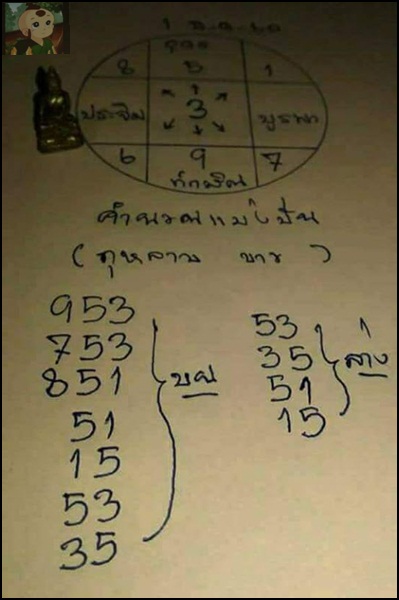 อุดร
8 5 1
ประจิม 3 บูรพา
6 9 7
ทักษิณ
คำนวณ
( กุหลาบ ขาว )
953
753
851
51
15
53
35
บน
53
35
51
15
ล่าง